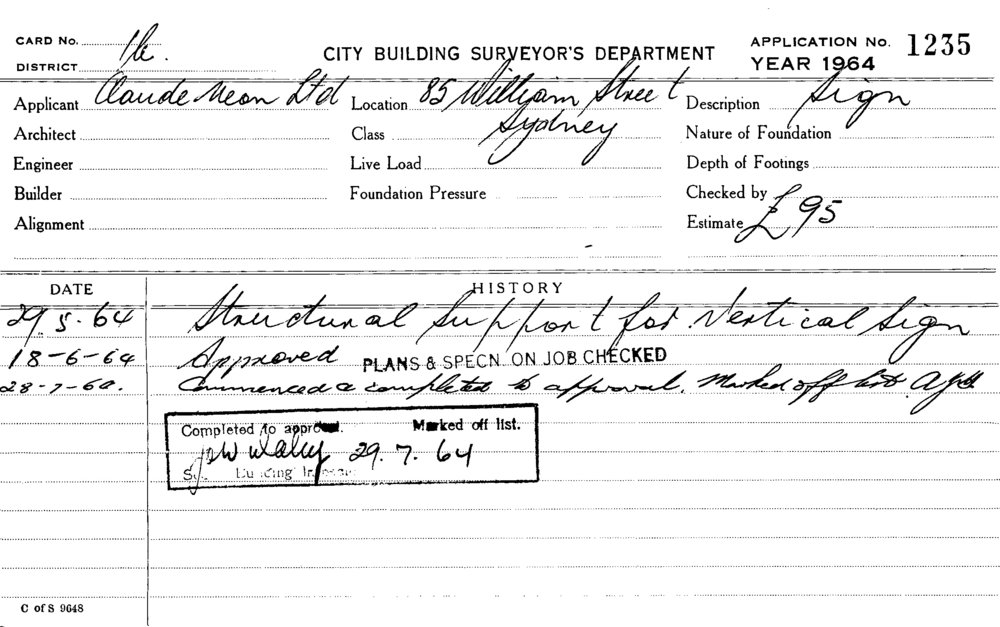 CARD No.
DISTRICT
CITY BUILDING SURVEYOR'S DEPARTMENT
APPLICATION No. 1235
YEAR 1964
Applicant Claude Neon Ltd Location 85 William Street Description Sign
Architect Class Sydney Nature of Foundation
Engineer Live Load Depth of Footings
Builder Foundation Pressure Checked by
Alignment Estimate £95
DATE HISTORY
29.5.64 Structural Support for Vertical Sign
18-6-64 Approved PLANS & SPECN. ON JOB CHECKED
28-7-64. Commenced & completed to approval. Marked off list.
Completed to approval. Marked off list.
29.7.64
Building
C of S 9648